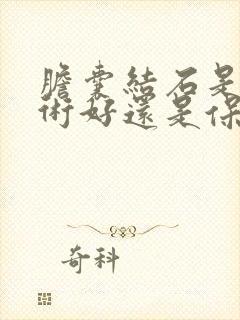 膽囊結石是
術好還是保
奇科